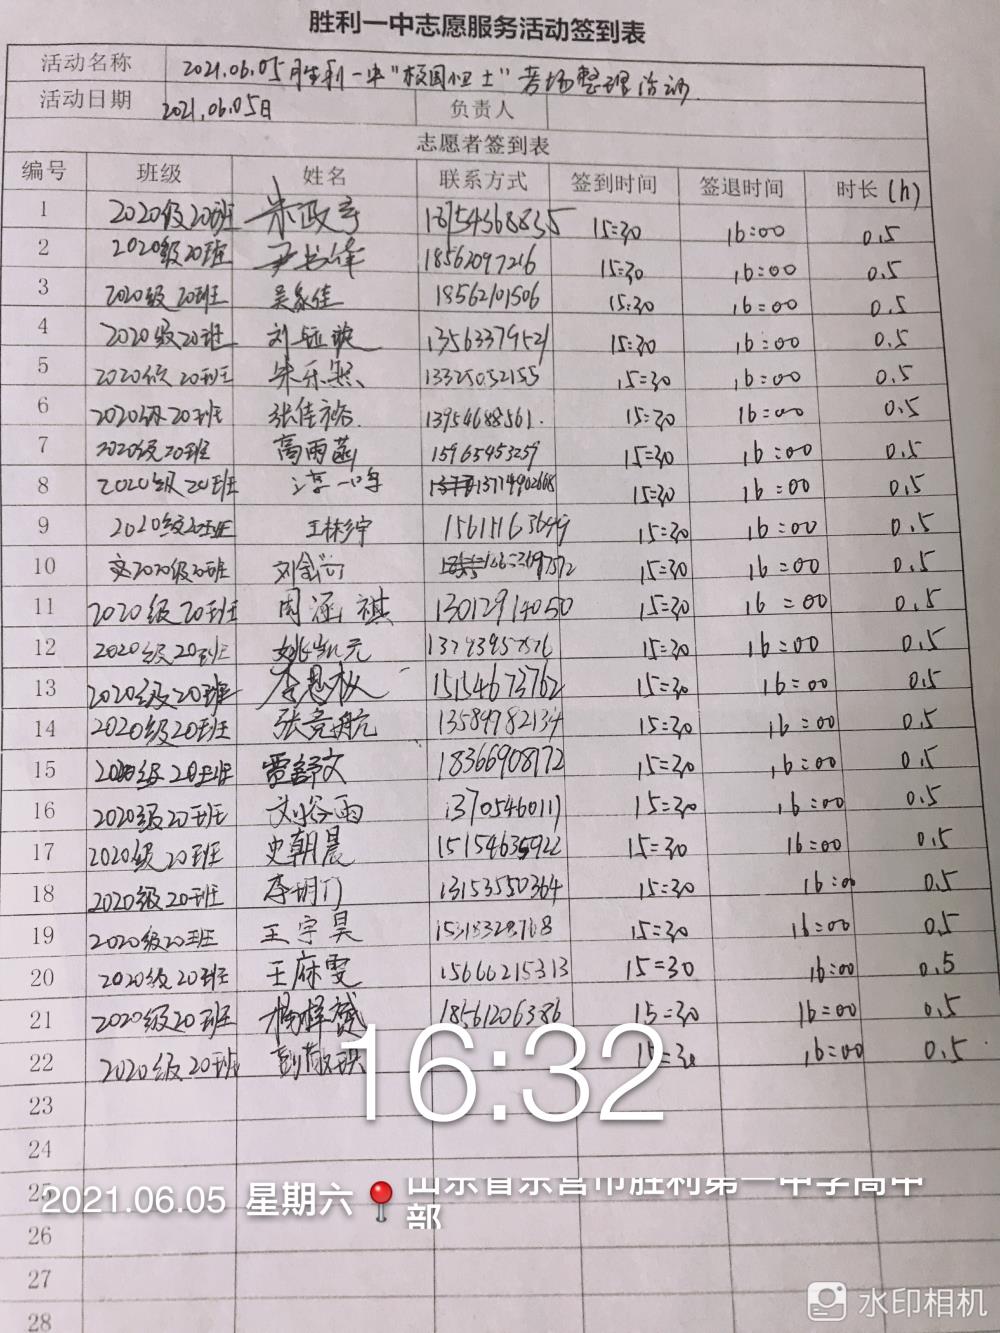 胜利一中志愿服务活动签到表
活动名称 2021.06.05胜利一中“校园卫士”考场整理活动
活动日期 2021.06.05日 负责人
志愿者签到表
编号 班级 姓名 联系方式 签到时间 签退时间 时长(h)
1 2020级20班 18754368835 15:30 16:00 0.5
2 2020级20班 18562097216 15:30 16:00 0.5
3 2020级20班 吴家佳 18562101506 15:30 16:00 0.5
4 2020级20班 刘钰璇 13563379521 15:30 16:00 0.5
5 2020级20班 朱乐 13325052155 15:30 16:00 0.5
6 2020级20班 张佳裕 13954688561. 15:30 16:00 0.5
7 2020级20班 高雨菡 15965953259 15:30 16:00 0.5
8 2020级20班 15714902668 15:30 16:00 0.5
9 2020级20班 王彬宇 15611163699 15:30 16:00 0.5
10 2020级20班 15:30 16:00 0.5
11 2020级20班 周涵祺 13012914050 15:30 16:00 0.5
12 2020级20班 姚凯元 15:30 16:00 0.5
13 2020级20班 李恩权 15154673762 15:30 16:00 0.5
14 2020级20班 张竞航 13589982134 15:30 16:00 0.5
15 2020级20班 贾舒文 18366908772 15:30 16:00 0.5
16 2020级20班 刘谷雨 13705460111 15:30 16:00 0.5
17 2020级20班 史朝晨 15154635922 15:30 16:00 0.5
18 2020级20班 13153550364 15:30 16:00 0.5
19 2020级20班 王宇昊 15:30 16:00 0.5
20 2020级20班 王麻雯 15666215313 15:30 16:00 0.5
21 2020级20班 18561206386 15:30 16:00 0.5
22 2020级20班 15:30 16:00 0.5
16:32
23
24
25
2021.06.05 星期六 山东省东营市胜利第一中学高中
部
26
27
28
水印相机